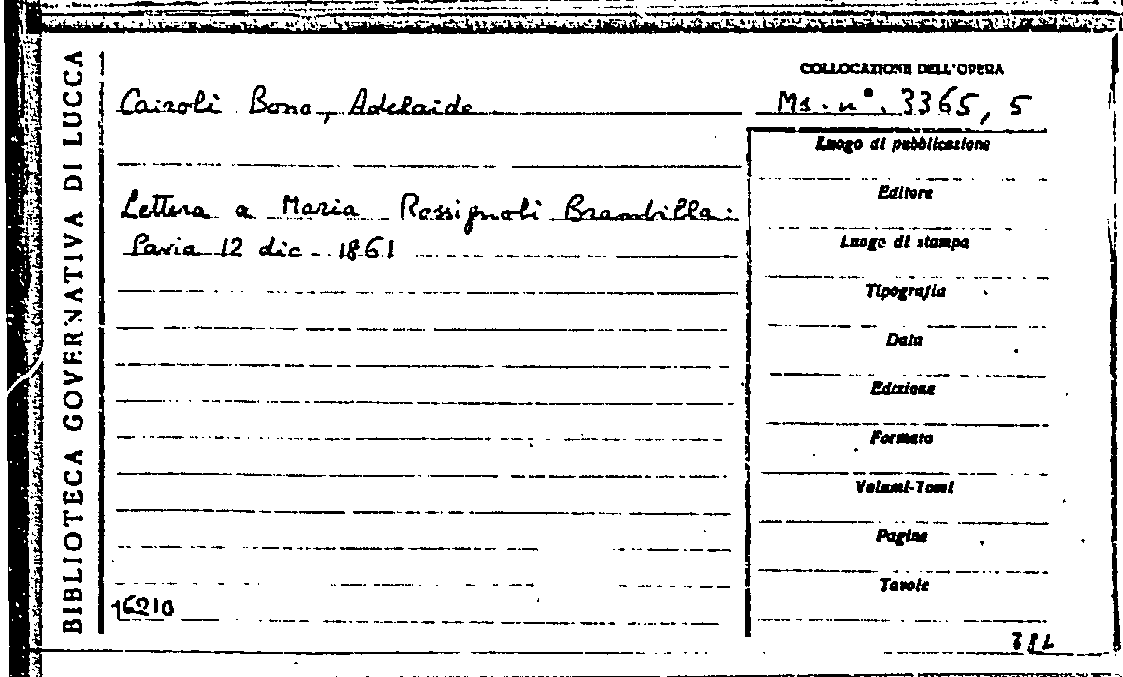 BIBLIOTECA GOVERNATIVA DI LUCCA
COLLOCAZIONE DELL'OPERA
Cairoli Bono, Adelaide
Ms. n°. 3365, 5
Luogo di pubblicazione
Editore
Lettera a Maria Rossignoli Brambilla:
Luogo di stampa
Pavia 12 dic. 1861
Tipografia
Data
Edizione
Formato
Volumi-Tomi
Pagine
Tavole
16210